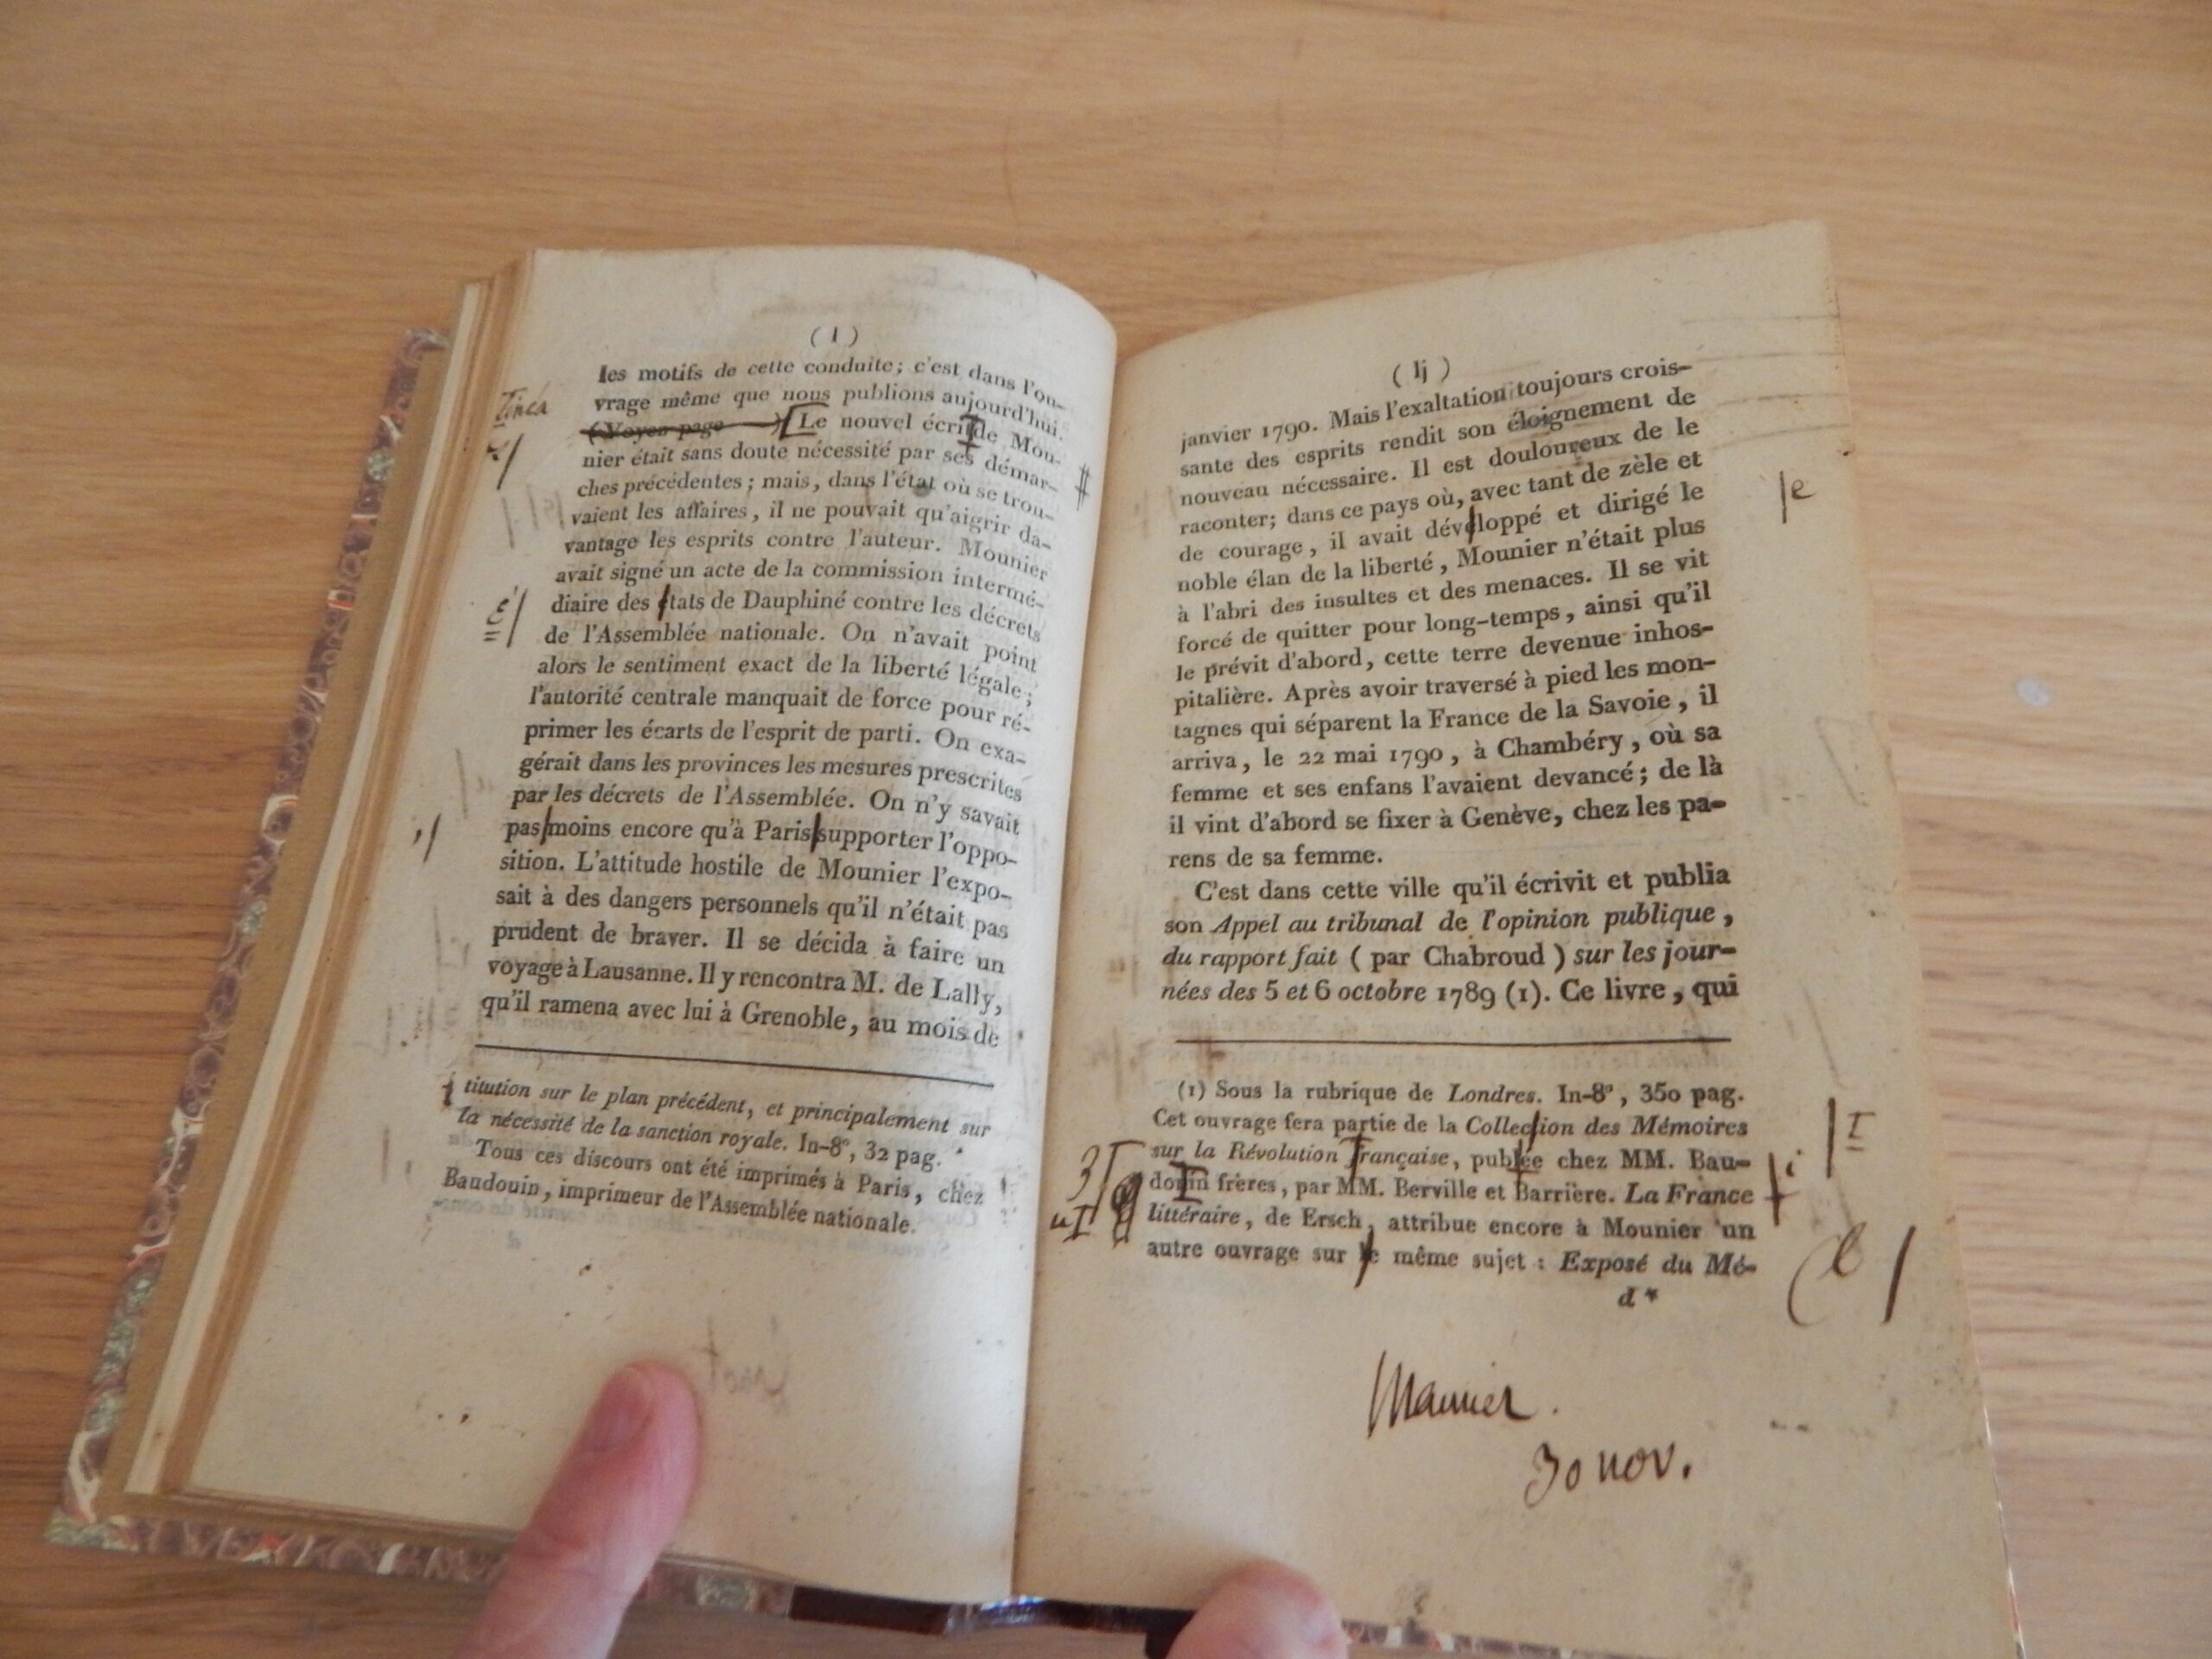 ( l )
les motifs de cette conduite; c'est dans l'ou-
vrage même que nous publions aujourd'hui.
(Voyez page ) Le nouvel écrit de Mou-
nier était sans doute nécessité par ses démar-
ches précédentes; mais, dans l'état où se trou-
vaient les affaires, il ne pouvait qu'aigrir da-
vantage les esprits contre l'auteur. Mounier
avait signé un acte de la commission intermé-
diaire des états de Dauphiné contre les décrets
de l'Assemblée nationale. On n'avait point
alors le sentiment exact de la liberté légale;
l'autorité centrale manquait de force pour ré-
primer les écarts de l'esprit de parti. On exa-
gérait dans les provinces les mesures prescrites
par les décrets de l'Assemblée. On n'y savait
pas moins encore qu'à Paris supporter l'oppo-
sition. L'attitude hostile de Mounier l'expo-
sait à des dangers personnels qu'il n'était pas
prudent de braver. Il se décida à faire un
voyage à Lausanne. Il y rencontra M. de Lally,
qu'il ramena avec lui à Grenoble, au mois de
titution sur le plan précédent, et principalement sur
la nécessité de la sanction royale. In-8°, 32 pag.
Tous ces discours ont été imprimés à Paris, chez
Baudouin, imprimeur de l'Assemblée nationale.
é
( lj )
janvier 1790. Mais l'exaltation toujours crois-
sante des esprits rendit son éloignement de
nouveau nécessaire. Il est douloureux de le
raconter; dans ce pays où, avec tant de zèle et
de courage, il avait développé et dirigé le
noble élan de la liberté, Mounier n'était plus
à l'abri des insultes et des menaces. Il se vit
forcé de quitter pour long-temps, ainsi qu'il
le prévit d'abord, cette terre devenue inhos-
pitalière. Après avoir traversé à pied les mon-
tagnes qui séparent la France de la Savoie, il
arriva, le 22 mai 1790, à Chambéry, où sa
femme et ses enfans l'avaient devancé; de là
il vint d'abord se fixer à Genève, chez les pa-
rens de sa femme.
C'est dans cette ville qu'il écrivit et publia
son Appel au tribunal de l'opinion publique,
du rapport fait ( par Chabroud ) sur les jour-
nées des 5 et 6 octobre 1789 (1). Ce livre, qui
(1) Sous la rubrique de Londres. In-8°, 350 pag.
Cet ouvrage fera partie de la Collection des Mémoires
sur la Révolution française, publiée chez MM. Bau-
douin frères, par MM. Berville et Barrière. La France
littéraire, de Ersch, attribue encore à Mounier un
autre ouvrage sur le même sujet : Exposé du Mé-
d*
e
i
e
30 nov.